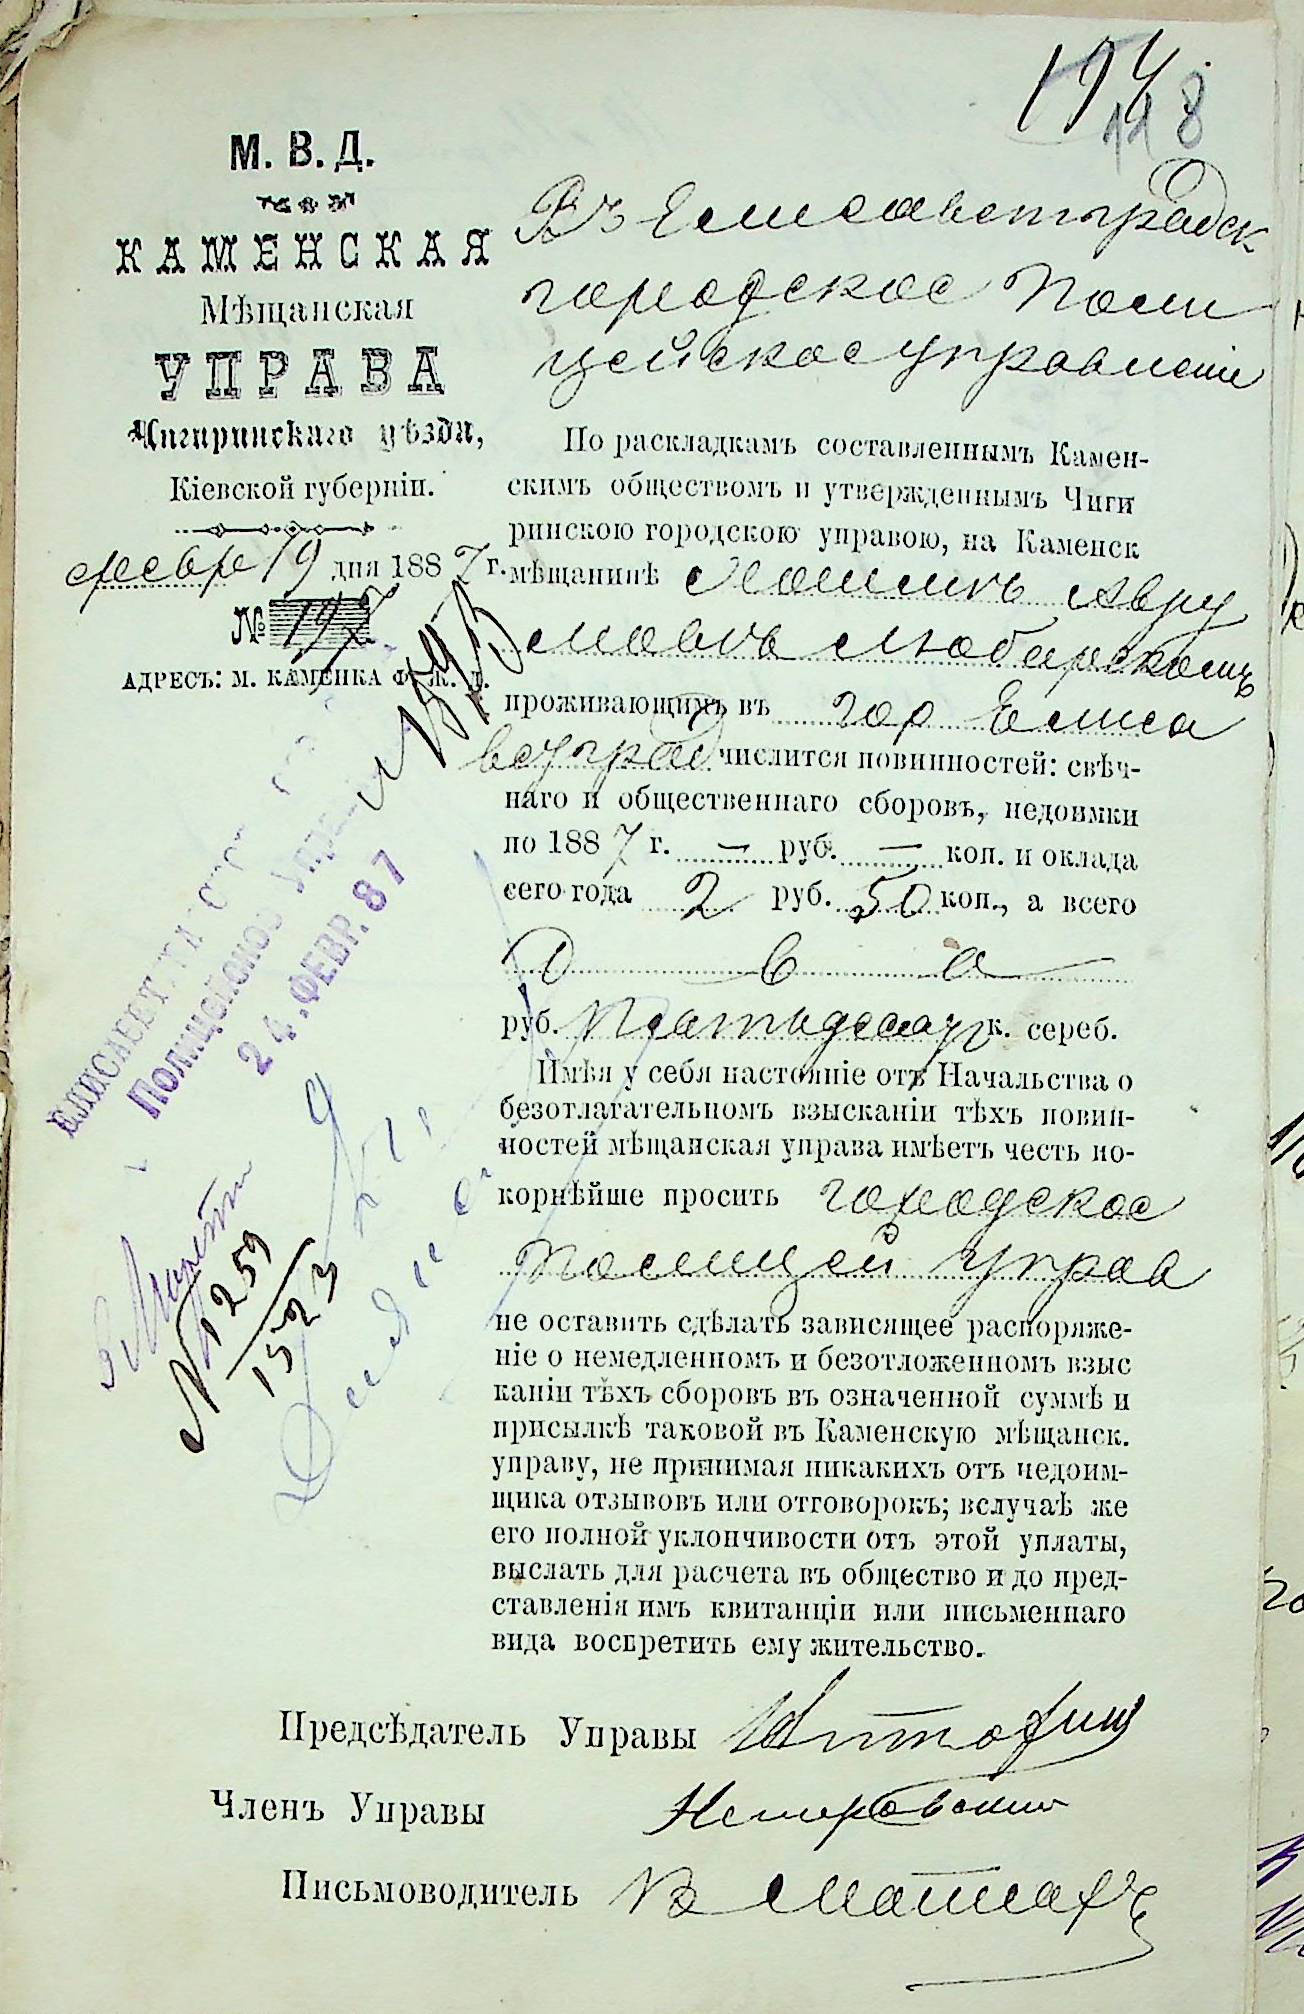 194
118
М. В. Д.
КАМЕНСКАЯ
Мѣщанская
УПРАВА
Чигиринскаго уѣзда,
Кіевской губерніи.
февр 19 дня 1887 г.
№ 197
АДРЕСЪ: М. КАМЕНКА Ф. Ж. Д.
Въ Елисаветградск
городское Поли
цейское управленіе
По раскладкамъ составленнымъ Камен-
скимъ обществомъ и утвержденнымъ Чиги
ринскою городскою управою, на Каменск
мѣщанинѣ Авру
Любарскомъ
проживающимъ въ гор Елиса
ветград числится повинностей: свѣч-
наго и общественнаго сборовъ, недоимки
по 1887 г. — руб. — коп. и оклада
сего года 2 руб. 50 коп., а всего
Два
руб. Пятьдесят к. сереб.
Имѣя у себя настояніе отъ Начальства о
безотлагательномъ взысканіи тѣхъ повин-
ностей мѣщанская управа имѣетъ честь по-
корнѣйше просить городское
Полицей управ
не оставить сдѣлать зависящее распоряже-
ніе о немедленномъ и безотложенномъ взыс
каніи тѣхъ сборовъ въ означенной суммѣ и
присылкѣ таковой въ Каменскую мѣщанск.
управу, не принимая никакихъ отъ недоим-
щика отзывовъ или отговорокъ; вслучаѣ же
его полной уклончивости отъ этой уплаты,
выслать для расчета въ общество и до пред-
ставленія имъ квитанціи или письменнаго
вида воспретить ему жительство.
Предсѣдатель Управы
Членъ Управы
Письмоводитель
ЕЛИСАВЕТГРАДСК
Полицейское Управ
24. ФЕВР. 87
№ 1259
1523